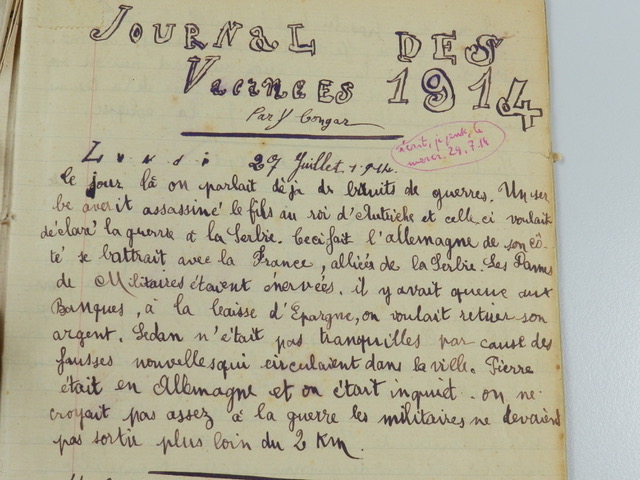 JOURNAL DES
Vacances 1914
Par Y Congar
écrit, je pense, le
mercr. 29.7.14
Lundi 27 Juillet. 1914.
Ce jour là on parlait déjà de bruits de guerres. Un ser
be avait assassiné le fils au roi d'Autriche et celle ci voulait
déclaré la guerre à la Serbie. Ceci fait l'allemagne de son cô-
té se battrait avec la France, alliées de la Serbie. Les Dames
de Militaires étaient énervées. il y avait queue aux
Banques, à la Caisse d'Epargne, on voulait retirer son
argent. Sedan n'était pas tranquilles par cause des
fausses nouvelles qui circulaient dans la ville. Pierre
était en Allemagne et on était inquiet. on ne
croyait pas assez à la guerre les militaires ne devaient
pas sortir plus loin du 2 Km.